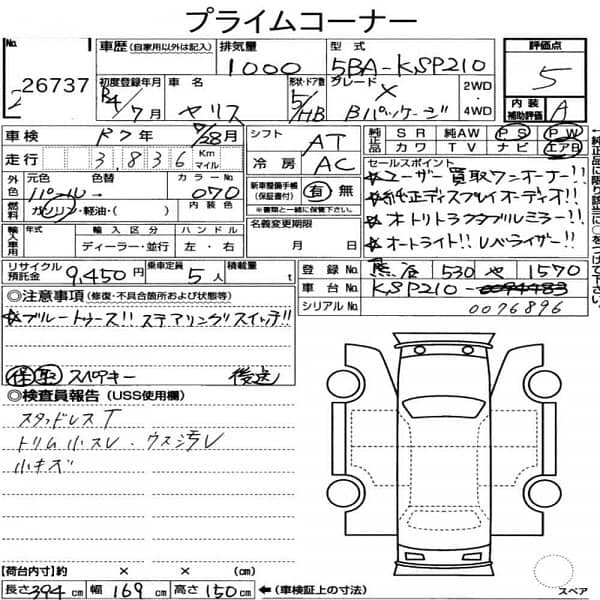 プライムコーナー
No.
26737
車歴 (自家用以外は記入)
排気量
1000
型式
5BA-KSP210
評価点
5
内装
補助評価
A
初度登録年月
R4/7月
車名
ヤリス
形状・ドア数
5/HB
グレード
X
Bパッケージ
2WD・4WD
車検
R7年 7/28月
シフト
AT
純正品
SR 純AW PS PW
カワ TV ナビ エアB
走行
3,836 Km マイル
冷房
AC
セールスポイント
☆ユーザー買取ワンオーナー!!
☆純正ディスプレイオーディオ!!
☆オトリトラクタブルミラー!!
☆オートライト!! レベライザー!!
外色
元色
パール
色替
カラーNo.
070
新車整備手帳
(保証書付)
有 無
※書類と一緒に保管下さい。
燃料
ガソリン・軽油・( )
内装色
名義変更期限
月 日
輸入車用
年式
輸入区分
ディーラー・並行
ハンドル
左・右
リサイクル預託金
9,450円
乗車定員
5人
積載量
t
登録No.
530 や 1570
車台No.
KSP210-
シリアルNo.
0076896
◎注意事項 (修復・不具合箇所および状態等)
☆ブルートゥース!! ステアリングスイッチ!!
保 取 スペアキー 後送
◎検査員報告 (USS使用欄)
スタッドレスT
トリム小スレ・ウス汚レ
小キズ
【荷台内寸】約 × × (cm)
長さ 394cm 幅 169cm 高さ 150cm ←(車検証上の寸法)
スペア